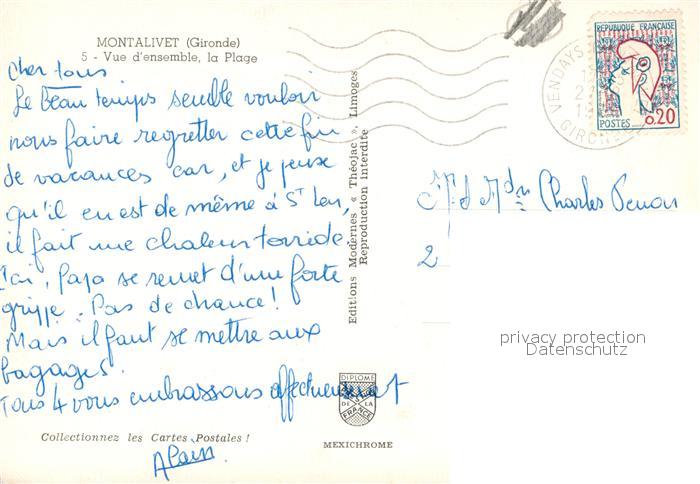 MONTALIVET (Gironde)
5 - Vue d'ensemble, la Plage
Cher tous
Le beau temps semble vouloir
nous faire regretter cette fin
de vacances car, et je pense
qu'il en est de même à St Leu,
il fait une chaleur torride
Ici, Papa se remet d'une forte
grippe. Pas de chance!
Mais il faut se mettre aux
bagages.
Tous 4 vous embrassons affectueusement
Alain
Collectionnez les Cartes Postales !
Editions Modernes « Théojac », Limoges
Reproduction interdite
DIPLOME
DE LA
FRANCE
MEXICHROME
VENDAYS
GIRONDE
REPUBLIQUE FRANÇAISE
POSTES 0,20
M. et Mme Charles
2
privacy protection
Datenschutz